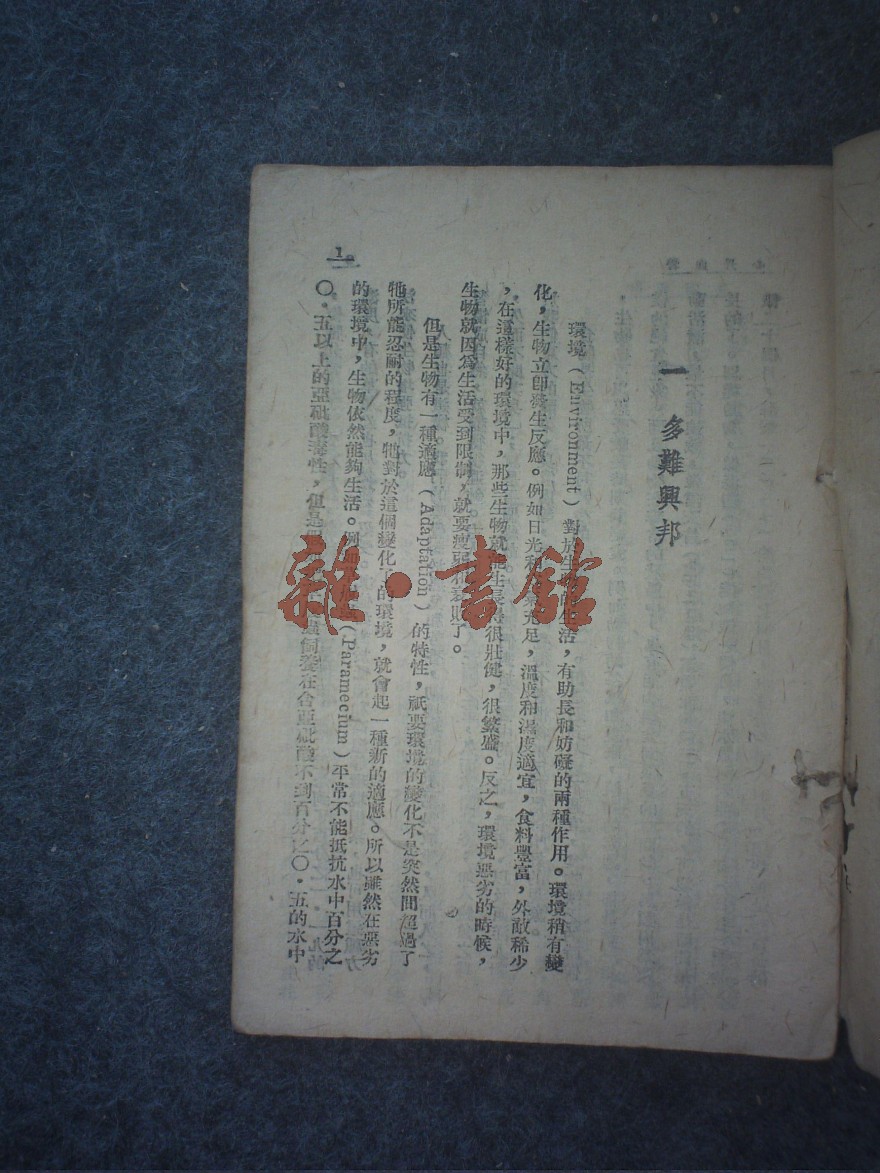 一 多難興邦
環境（Environment）對於生的生活，有助長和妨礙的兩種作用。環境稍有變
化，生物立卽發生反應。例如日光和充足，溫度和濕度適宜，食料豐富，外敵稀少
，在這樣好的環境中，那些生物就能生長得很壯健，很繁盛。反之，環境惡劣的時候，
生物就因爲生活受到限制，就要瘦弱衰敗了。
但是生物有一種適應（Adaptation）的特性，祇要環境的變化不是突然間超過了
牠所能忍耐的程度，牠對於這個變化了的環境，就會起一種新的適應。所以雖然在惡劣
的環境中，生物依然能夠生活。例如（Paramecium）平常不能抵抗水中百分之
〇・五以上的亞砒酸毒性，但是蟲飼養在含亞砒酸不到百分之〇・五的水中
1
雜・書館